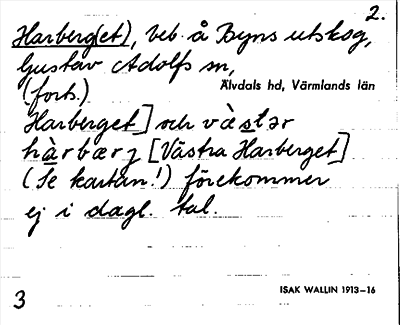 2.
Harberg(et), veb. å Byns utskog,
Gustav Adolfs sn,
(forts.) Älvdals hd, Värmlands län
Harberget] och västər
hàrbærʒ [Västra Harberget]
(Se kartan!) förekommer
ej i dagl. tal.
3 ISAK WALLIN 1913–16